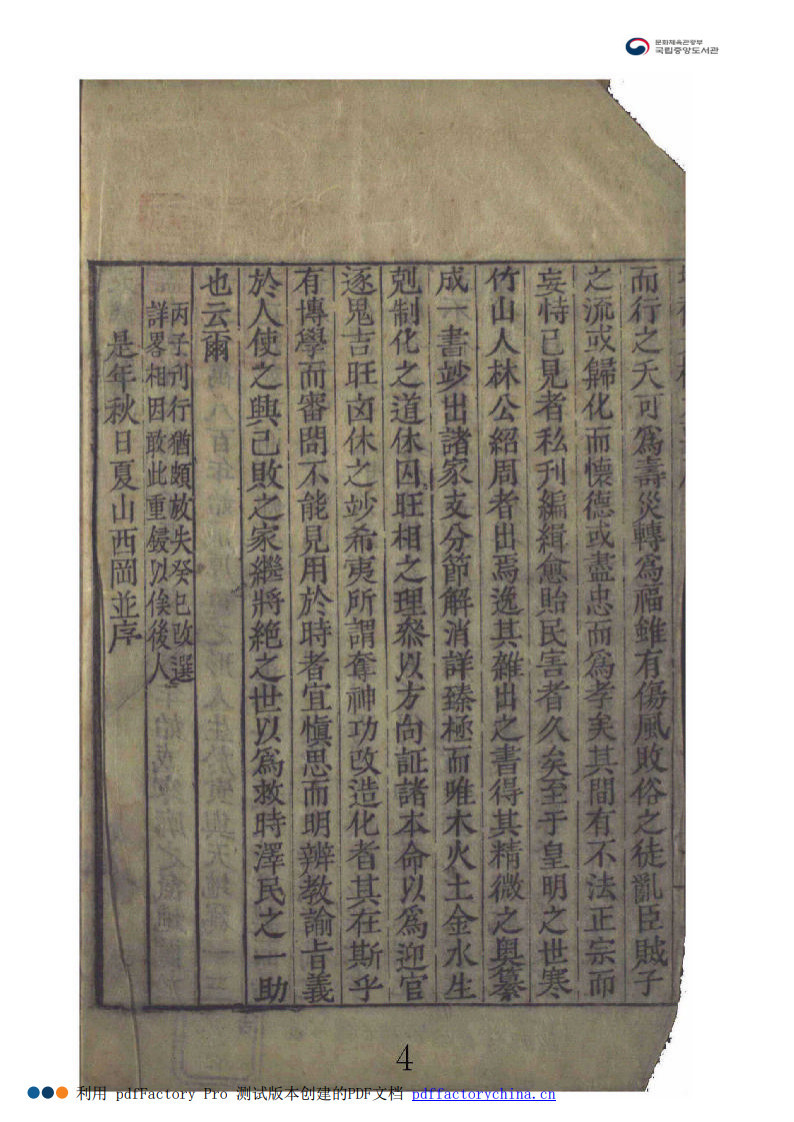 문화체육관광부
국립중앙도서관
而行之夭可爲壽災轉爲福雖有傷風敗俗之徒亂臣賊子
之流或歸化而懷德或盡忠而爲孝矣其間有不法正宗而
妄恃已見者私刊編緝愈貽民害者久矣至于皇明之世寒
竹山人林公紹周者出焉逸其雜出之書得其精微之奧纂
成一書妙出諸家支分節解消詳臻極而唯木火土金水生
剋制化之道休囚旺相之理叅以方向証諸本命以爲迎官
逐鬼吉旺凶休之妙希夷所謂奪神功改造化者其在斯乎
有博學而審問不能見用於時者宜愼思而明辨教諭旨義
於人使之興已敗之家繼將絶之世以爲救時澤民之一助
也云爾
丙子刊行猶頗放失癸巳改選
詳畧相因敢此重鋟以俟後人
是年秋日夏山西岡並序
4
利用 pdfFactory Pro 测试版本创建的PDF文档 pdffactorychina.cn